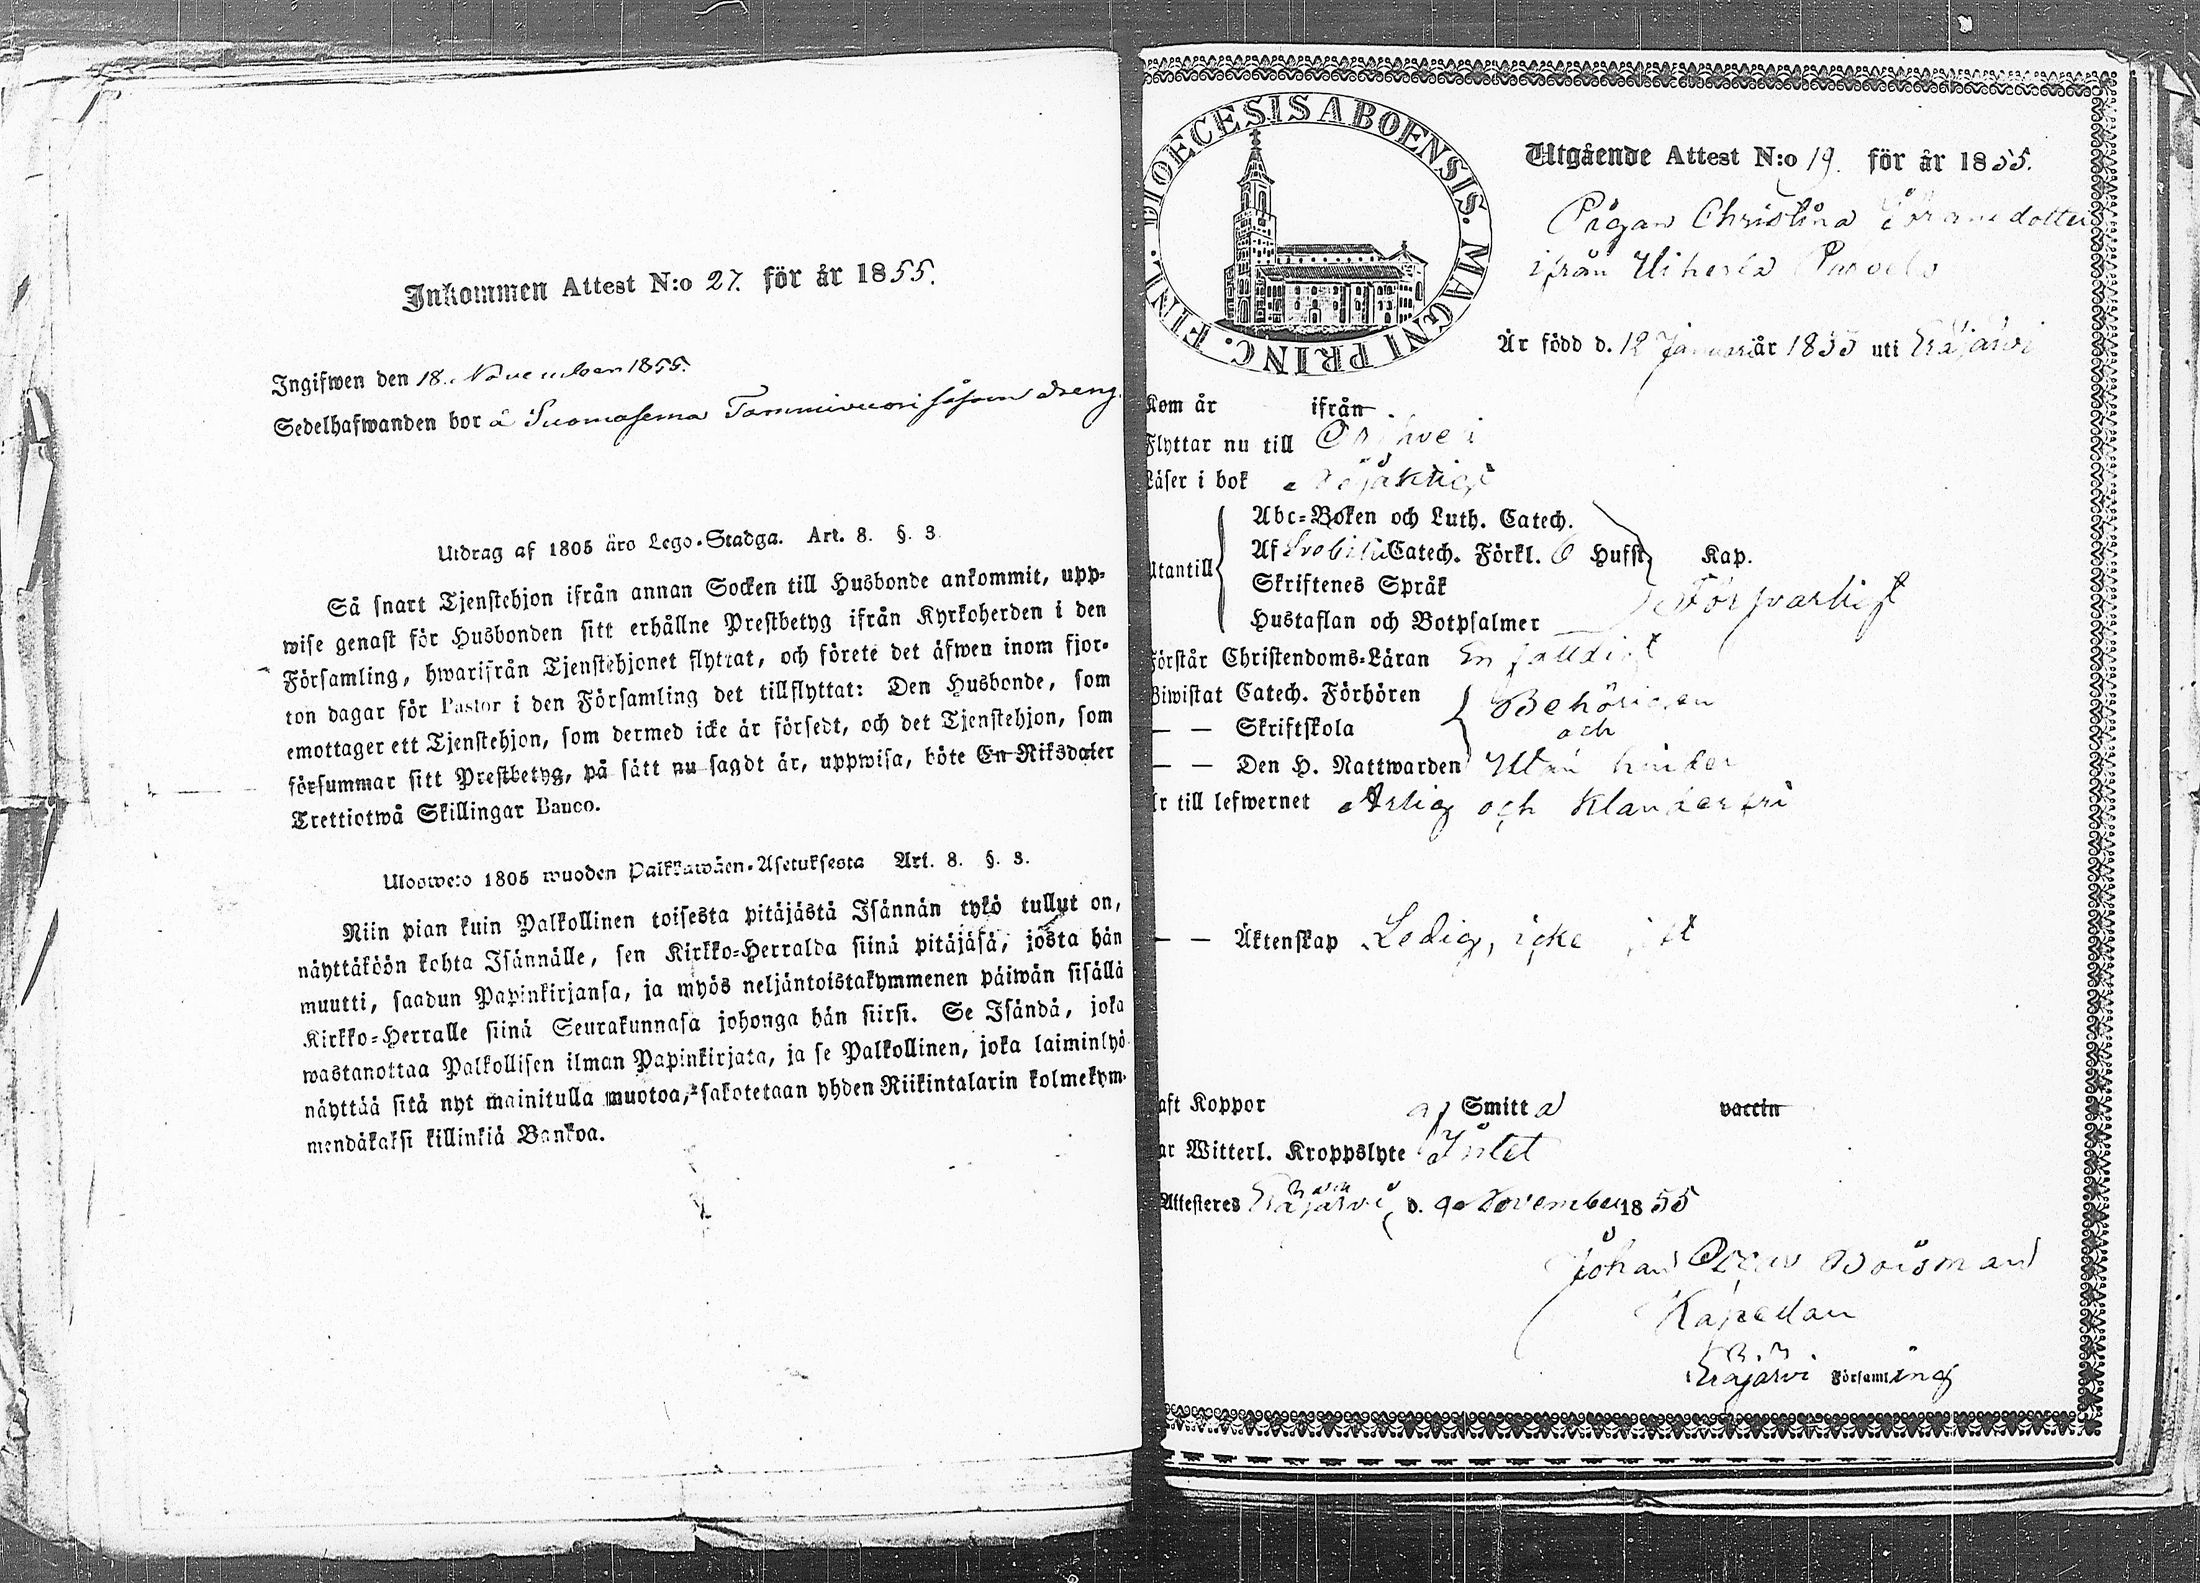 Inkommen Attest N:o 27. för år 1855.
Ingifwen den 18. November 1855.
Sedelhafwanden bor å Suomasema Tammivuori såsom dreng.
Utdrag af 1805 åro Lego-Stadga. Art. 8. §. 3.
Så snart Tjenstehjon ifrån annan Socken till Husbonde ankommit, upp-
wise genast för Husbonden sitt erhållne Prestbetyg ifrån Kyrkoherden i den
Församling, hwarifrån Tjenstehjonet flyttat, och förete det äfwen inom fjor-
ton dagar för Pastor i den Församling det tillflyttat: Den Husbonde, som
emottager ett Tjenstehjon, som dermed icke är försedt, och det Tjenstehjon, som
försummar sitt Prestbetyg, på sätt nu sagdt är, uppwisa, böte En Riksdaler
Trettiotwå Skillingar Banco.
Ulosweto 1805 wuoden Palkkawäen-Asetuksesta Art. 8. §. 3.
Niin pian kuin Palkollinen toisesta pitäjästä Isännän tykö tullut on,
näyttäköön kohta Isännälle, sen Kirkko-Herralda siinä pitäjäsä, josta hän
muutti, saadun Papinkirjansa, ja myös neljäntoistakymmenen päiwän sisällä
Kirkko-Herralle siinä Seurakunnasa johonga hän siirsi. Se Isändä, joka
wastanottaa Palkollisen ilman Papinkirjata, ja se Palkollinen, joka laiminlyö
näyttää sitä nyt mainitulla muotoa, sakotetaan yhden Riikintalarin kolmekym-
mendäkaksi killinkiä Bankoa.
DIOECESIS ABOENSIS. MAGNI PRINC. FINL.
Utgående Attest N:o 19. för år 1855.
Pigan Christina dotter
ifrån Uiherla
Är född d. 12 Januari år 1833 uti Eräjärvi
Kom år ifrån
Flyttar nu till Orihvesi
Läser i bok Nöjaktigt
Abc-Boken och Luth. Catech.
Utantill Af Svebilii Catech. Förkl. 6 Hufst Kap.
Skriftenes Språk Försvarligt
Hustaflan och Botpsalmer
Förstår Christendoms-Läran Enfalldigt
Biwistat Catech. Förhören Behörigen
— — Skriftskola och
— — Den H. Nattwarden Utan hinder
Är till lefwernet Ärlig och Klanderfri
— — Äktenskap Ledig, icke
aft Koppor af Smitta vaccin
ar Witterl. Kroppslyte Intet
Attesteres Eräjärvi, d. 9 November 1855
Johan Oscar Boisman
Kapellan
Eräjärvi Församling